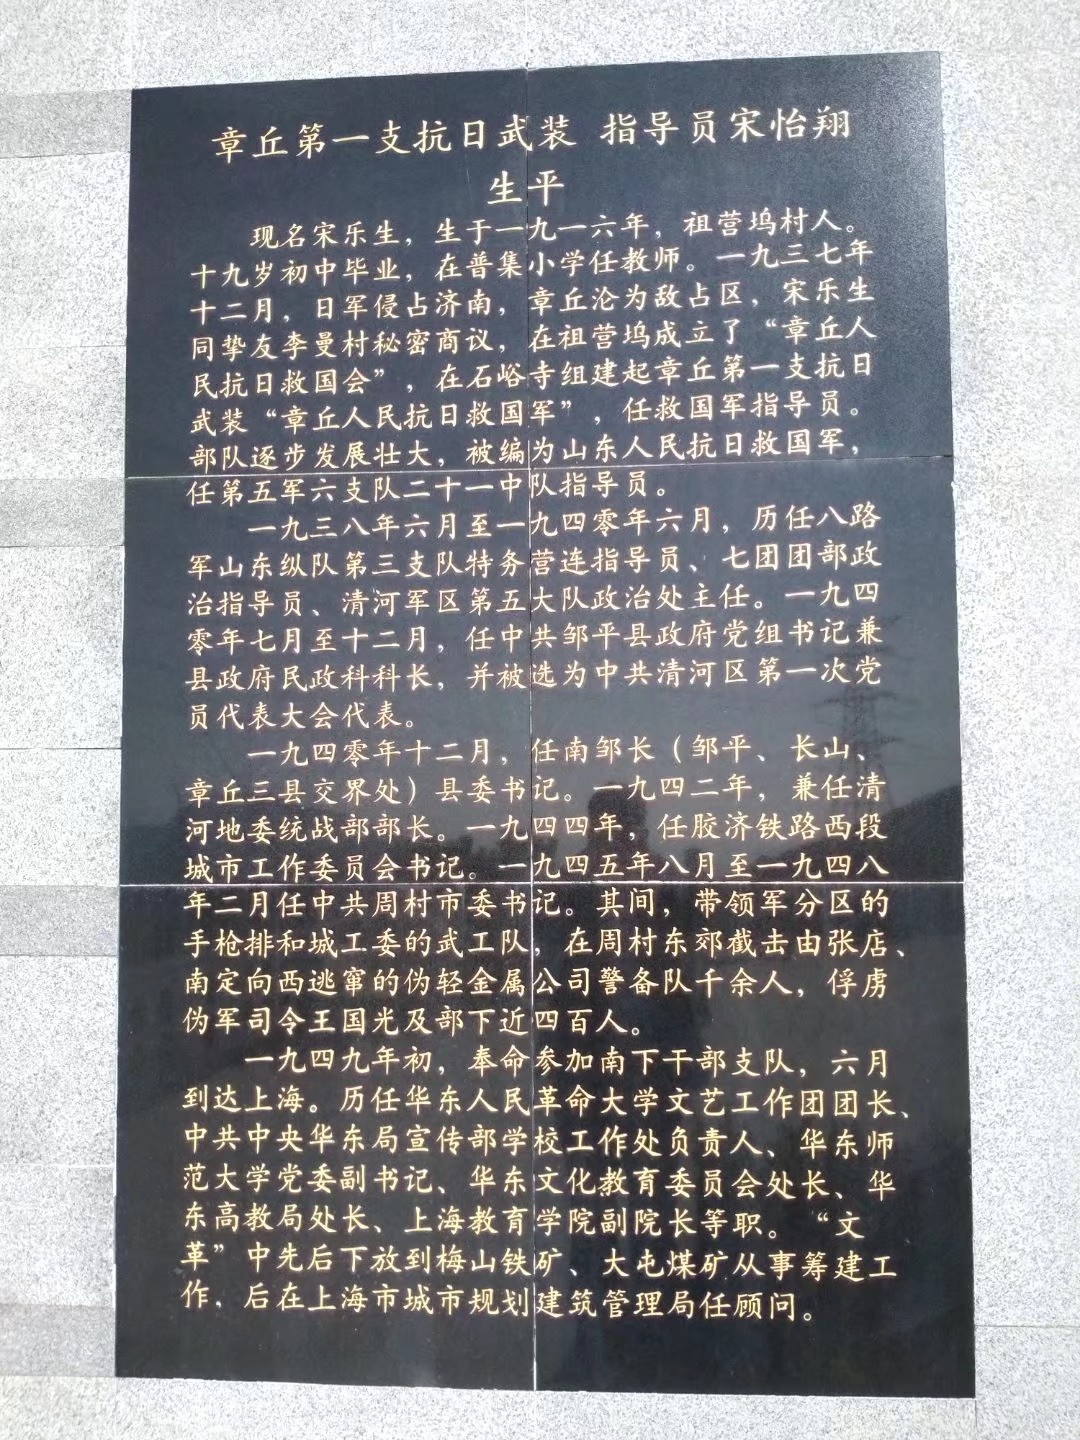 章丘第一支抗日武装 指导员宋怡翔
生平
现名宋乐生，生于一九一六年，祖营坞村人。
十九岁初中毕业，在普集小学任教师。一九三七年
十二月，日军侵占济南，章丘沦为敌占区，宋乐生
同挚友李曼村秘密商议，在祖营坞成立了“章丘人
民抗日救国会”，在石峪寺组建起章丘第一支抗日
武装“章丘人民抗日救国军”，任救国军指导员。
部队逐步发展壮大，被编为山东人民抗日救国军，
任第五军六支队二十一中队指导员。
一九三八年六月至一九四零年六月，历任八路
军山东纵队第三支队特务营连指导员、七团团部政
治指导员、清河军区第五大队政治处主任。一九四
零年七月至十二月，任中共邹平县政府党组书记兼
县政府民政科科长，并被选为中共清河区第一次党
员代表大会代表。
一九四零年十二月，任南邹长（邹平、长山、
章丘三县交界处）县委书记。一九四二年，兼任清
河地委统战部部长。一九四四年，任胶济铁路西段
城市工作委员会书记。一九四五年八月至一九四八
年二月任中共周村市委书记。其间，带领军分区的
手枪排和城工委的武工队，在周村东郊截击由张店、
南定向西逃窜的伪轻金属公司警备队千余人，俘虏
伪军司令王国光及部下近四百人。
一九四九年初，奉命参加南下干部支队，六月
到达上海。历任华东人民革命大学文艺工作团团长、
中共中央华东局宣传部学校工作处负责人、华东师
范大学党委副书记、华东文化教育委员会处长、华
东高教局处长、上海教育学院副院长等职。“文
革”中先后下放到梅山铁矿、大屯煤矿从事筹建工
作，后在上海市城市规划建筑管理局任顾问。